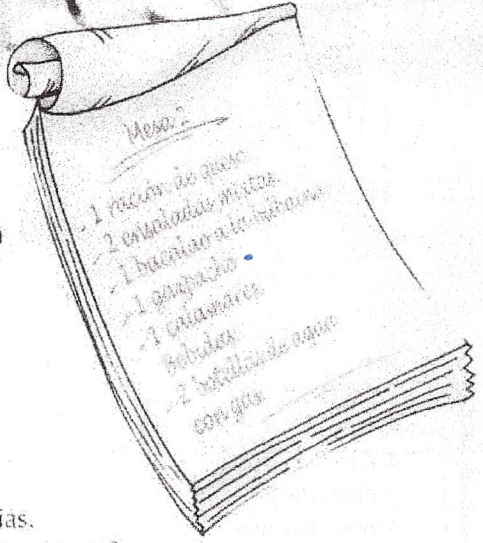 Mesa 2
- 1 ración de queso
- 2 ensaladas mixtas
- 1 bacalao a la vizcaína
- 1 gazpacho
- 1 calamares
Bebidas
- 2 botellas de agua
con gas
ías.